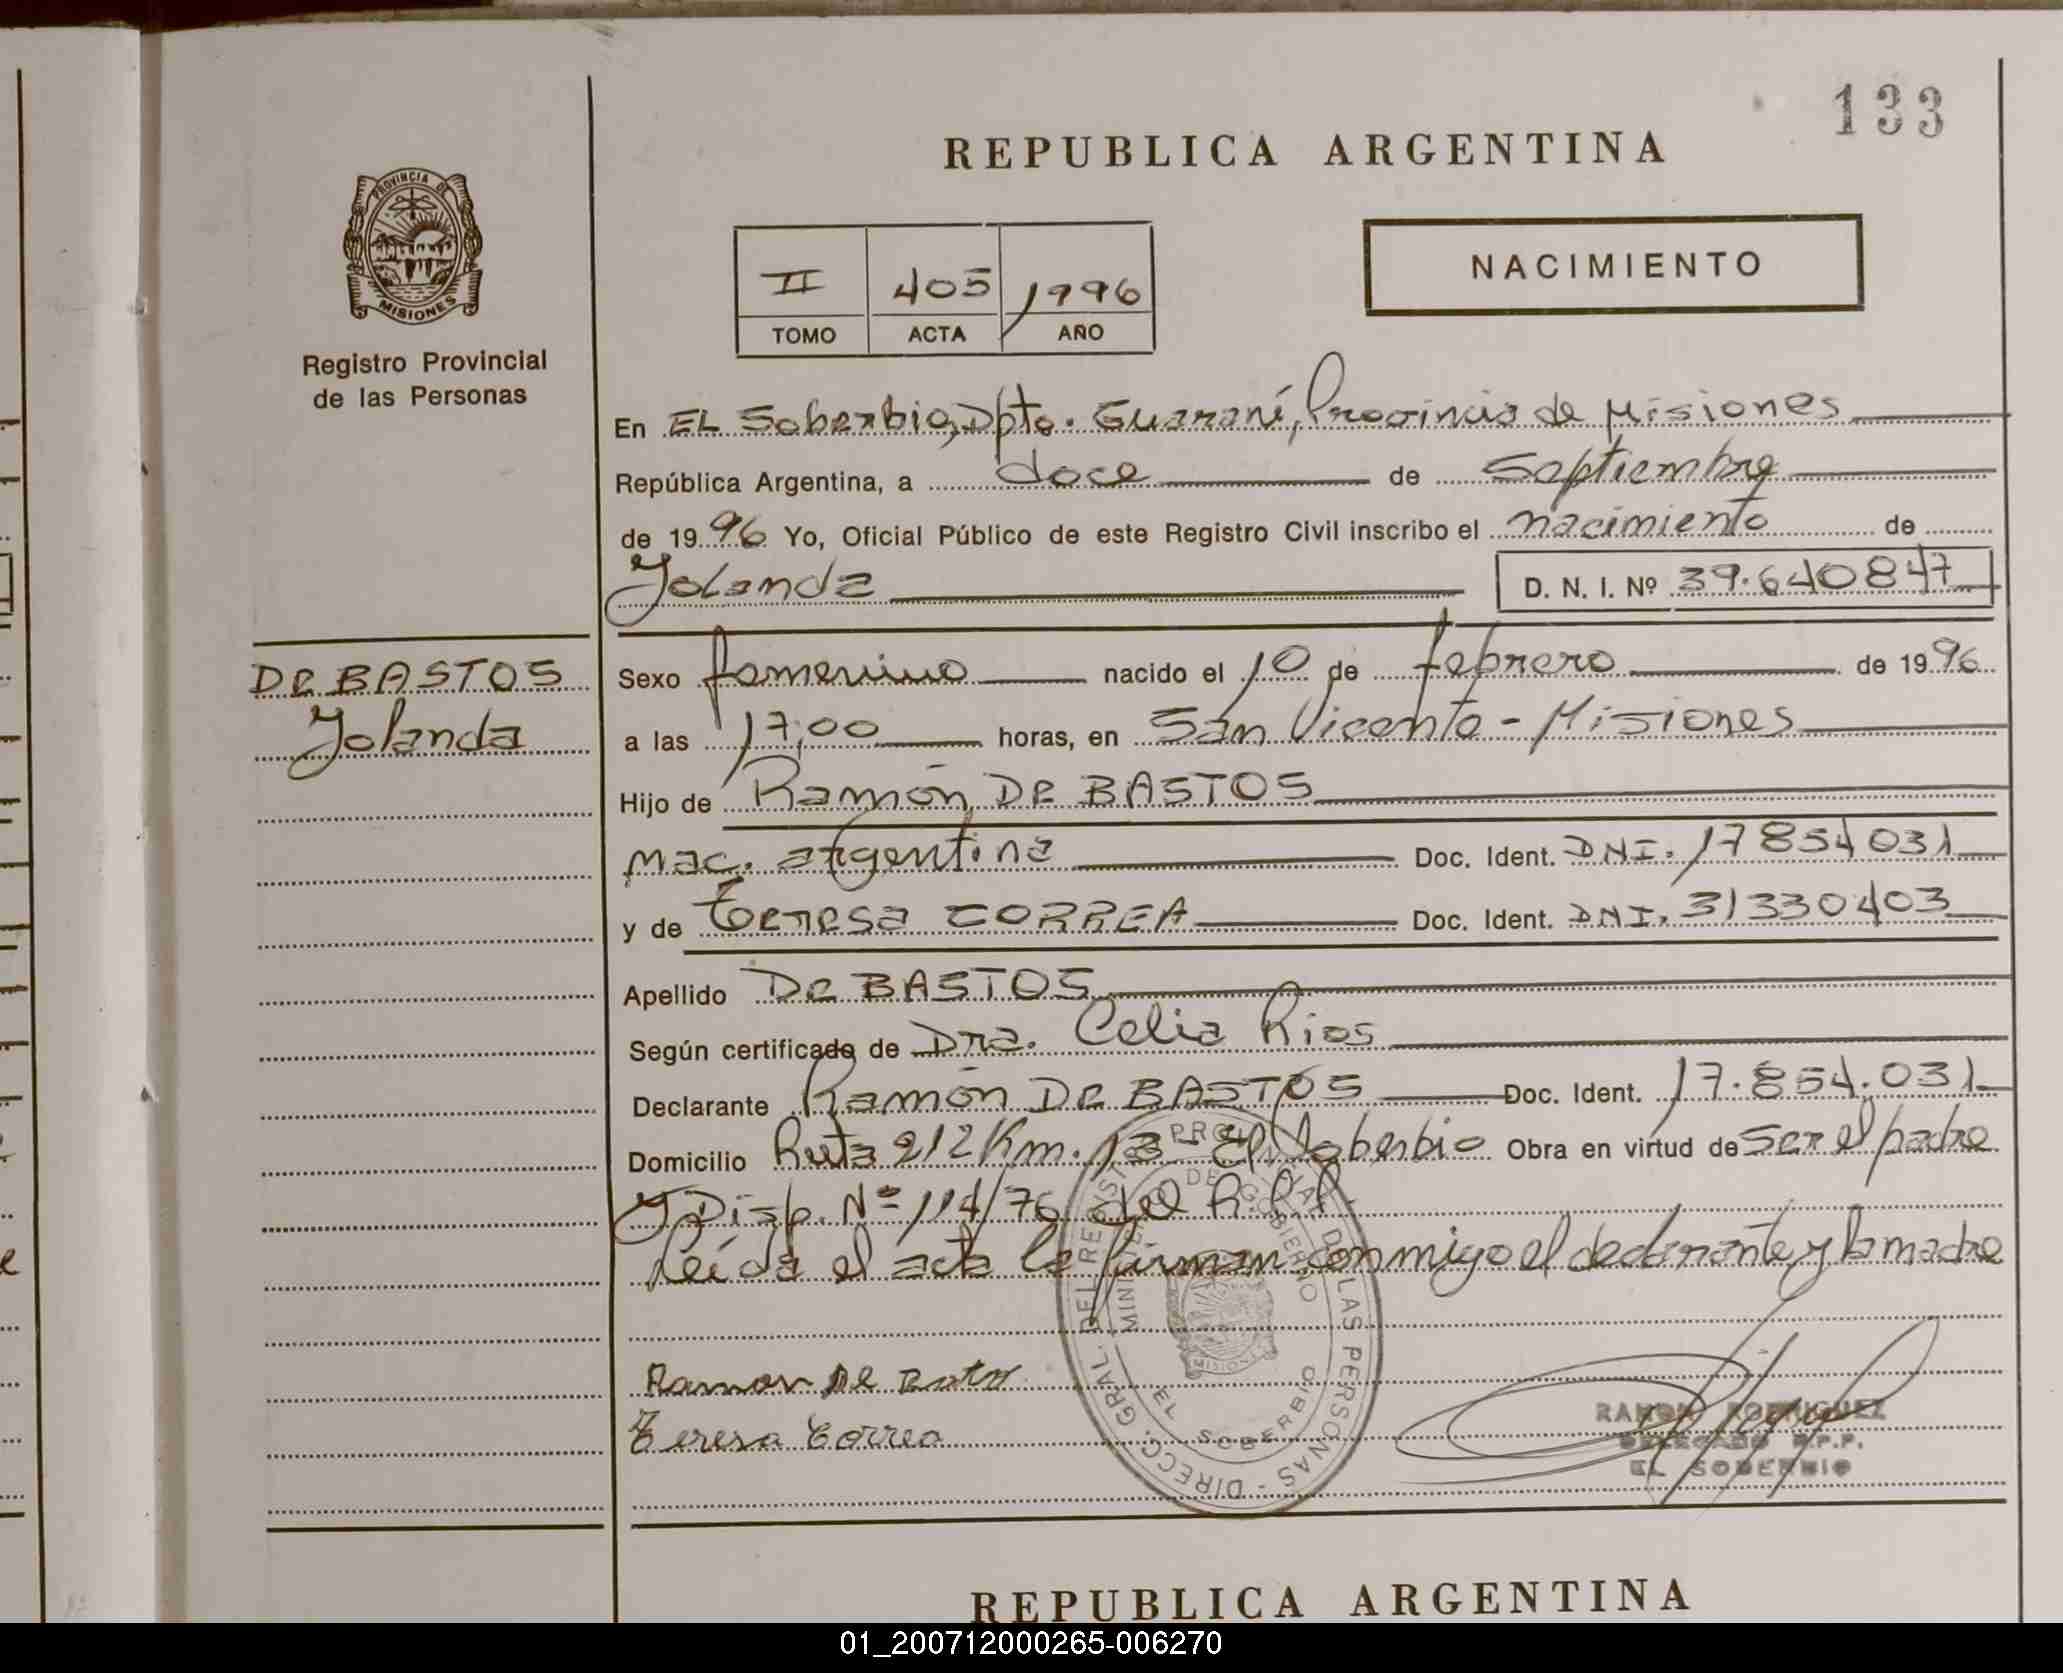 133
REPUBLICA ARGENTINA
PROVINCIA DE
MISIONES
Registro Provincial
de las Personas
II 405 1996
TOMO ACTA AÑO
NACIMIENTO
En EL Soberbio, Dpto. Guaraní, Provincia de Misiones
República Argentina, a doce de Septiembre
de 1996 Yo, Oficial Público de este Registro Civil inscribo el nacimiento de
Yolanda D. N. I. Nº 39.640847
De BASTOS
Yolanda
Sexo femenino nacido el 10 de febrero de 1996
a las 17,00 horas, en San Vicente - Misiones
Hijo de Ramón De BASTOS
nac. argentina Doc. Ident. DNI. 17854031
y de Teresa CORREA Doc. Ident. DNI. 31330403
Apellido De BASTOS
Según certificado de Dra. Celia Rios
Declarante Ramón De BASTOS Doc. Ident. 17.854.031
Domicilio Ruta 212 Km. 13 - El Soberbio Obra en virtud de Ser el padre
y Disp. Nº 114/76 del R.P.P.
Leída el acta la firman conmigo el declarante y la madre
DIRECC. GRAL. DEL REGISTRO PROVINCIAL DE LAS PERSONAS
MINISTERIO DE GOBIERNO
MISIONES
EL SOBERBIO
Ramon De Bastos
Teresa Correa
RAMON RODRIGUEZ
DELEGADO R.P.P.
EL SOBERBIO
REPUBLICA ARGENTINA
01_200712000265-006270